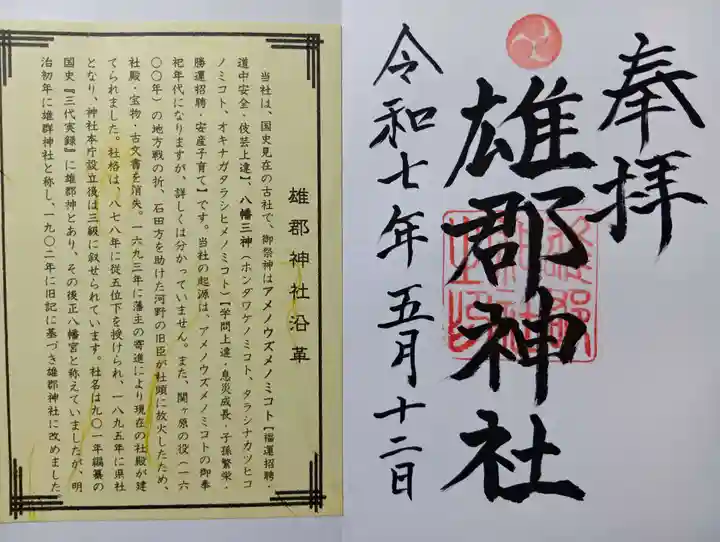 奉拝
雄郡神社
令和七年五月十二日
雄郡神社沿革
当社は、国史見在の古社で、御祭神はアメノウズメノミコト【福運招聘・
道中安全・伎芸上達】、八幡三神（ホンダワケノミコト、タラシナカツヒコ
ノミコト、オキナガタラシヒメノミコト）【学問上達・息災成長・子孫繁栄・
勝運招聘・安産子育て】です。当社の起源は、アメノウズメノミコトの御奉
祀年代になりますが、詳しくは分かっていません。また、関ヶ原の役（一六
〇〇年）の地方戦の折、石田方を助けた河野の旧臣が社頭に放火したため、
社殿・宝物・古文書を消失。一六九三年に藩主の寄進により現在の社殿が建
てられました。社格は、八七八年に従五位下を授けられ、一八九五年に県社
となり、神社本庁設立後は三級に叙せられています。社名は九〇一年編纂の
国史『三代実録』に雄郡神とあり、その後正八幡宮と称えていましたが、明
治初年に雄群神社と称し、一九〇二年に旧記に基づき雄郡神社に改めました